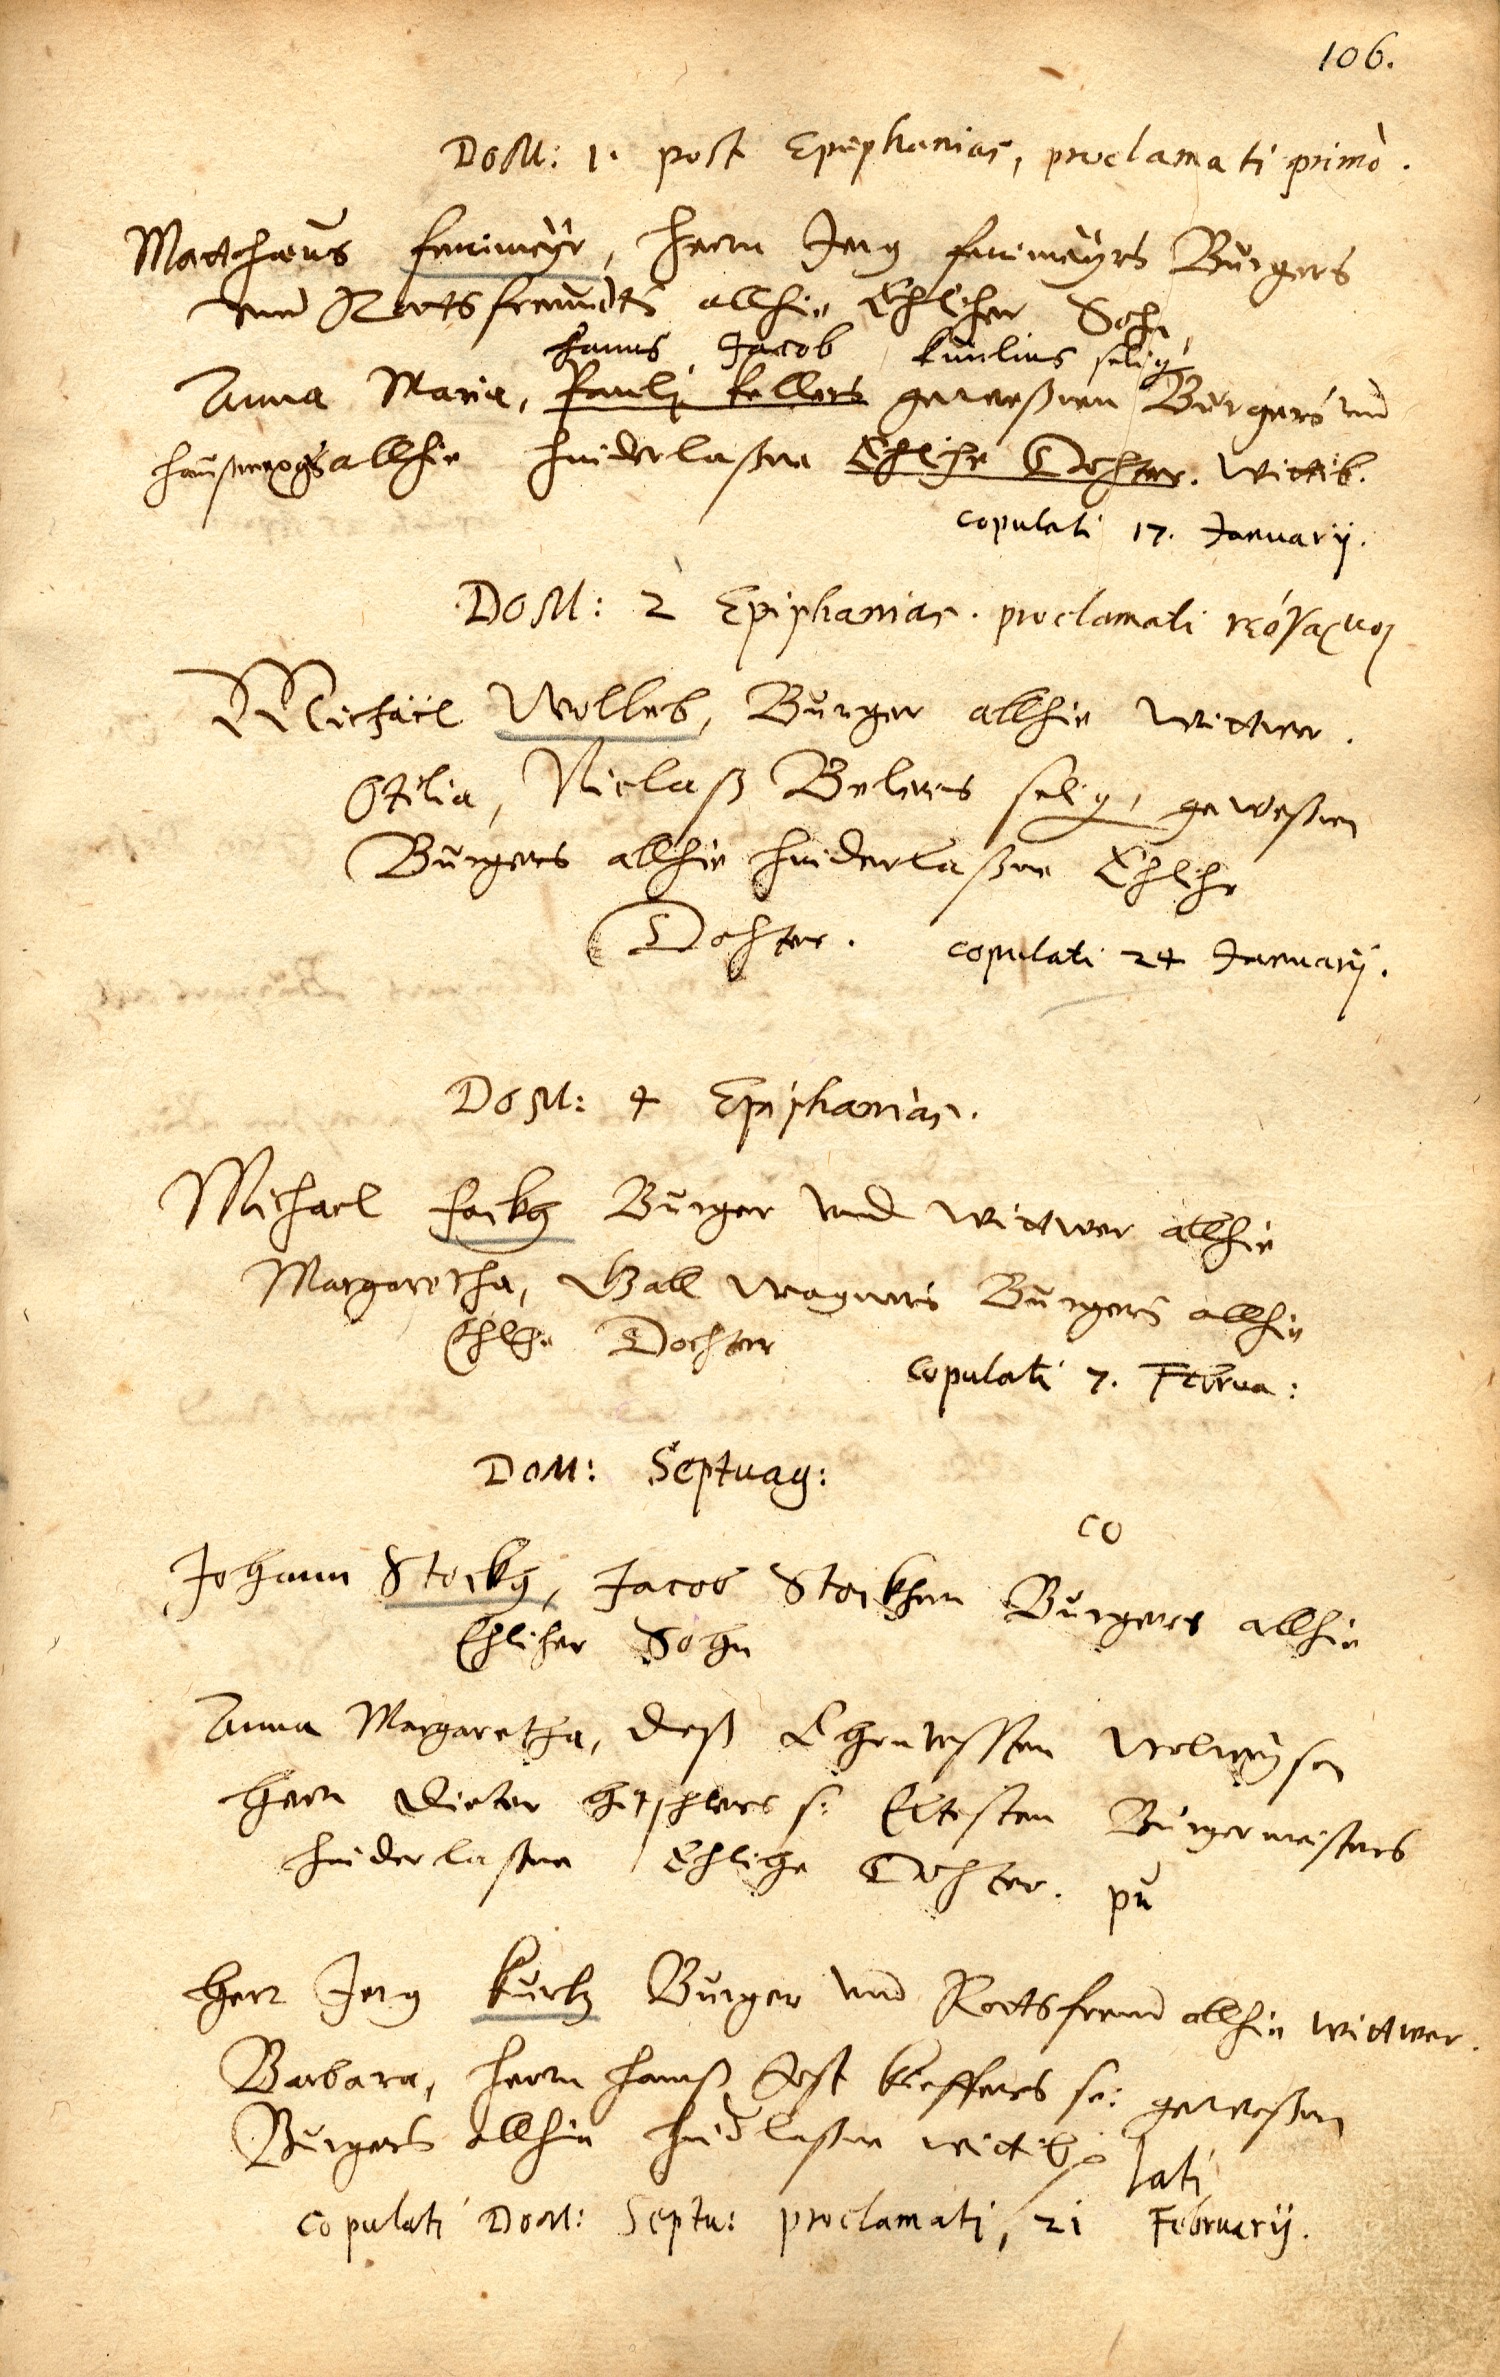 106.
DOM: 1. post Epiphanias, proclamati primò.
Matthaeus Feurmeÿr, Herrn Jerg Feurmeÿrs Burgers
vnd Rathsfreundts allhie Ehlicher Sohn,
Hanns Jacob Künlins selig
Anna Maria, Pauli Kellers geweßnen Burgers vnd
allhie hinderlaßne Ehliche Dochter. Wittib.
copulati 17. Januarij.
DOM: 2 Epiphanias. proclamati
Michaël Wolleb, Burger allhie Wittwer.
Otilia, Niclaß Belers selig, geweßnen
Burgers allhie hinderlaßne Ehliche
Dochter. copulati 24 Januarij.
DOM: 4 Epiphanias.
Michael Burger vnd Wittwer allhie
Margaretha, Gall Wagners Burgers allhie
Ehliche Dochter
copulati 7. Februa:
DOM: Septuag:
co
Johann Stocky, Jacob Stockhen Burgers allhie
Ehlicher Sohn
Anna Margaretha, deß Ehrnvesten Wolweÿsen
Herrn Dieter s: Eltesten Burgermeisters
hinderlaßne Ehliche Dochter. pu
Herr Jerg Kurtz Burger vnd Rathsfreund allhie Wittwer.
Barbara, Herrn Hannß Jost Kieffers se: geweßnen
Burgers allhie hinderlaßne Wittib.
lati
copulati DOM: Septu: proclamati, 21 Februarij.